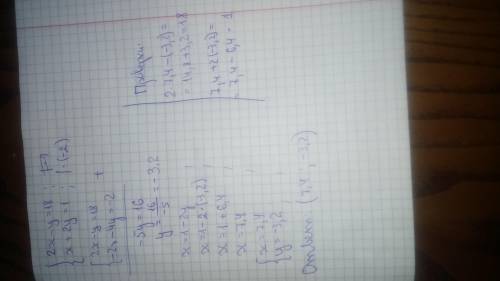 {2x-y=18 ;
{x+2y=1 ; |·(-2)
{2x-y=18
{-2x-4y=-2 +
-5y=16
y=16/-5=-3,2
x=1-2y ;
x=1-2·(-3,2) ;
x=1+6,4 ;
x=7,4 ;
{x=7,4 ;
{y=-3,2 ;
Ответ: (7,4 ; -3,2)
Проверка:
2·7,4-(-3,2)=
=14,8+3,2=18
7,4+2(-3,2)=
=7,4-6,4=1